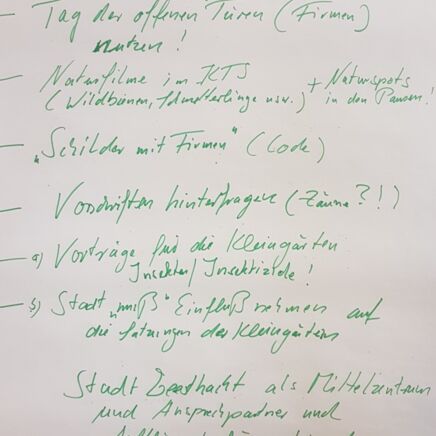 – Tag der offenen Türen (Firmen)
nutzen!
– Naturfilme im KTS + Naturspots
(Wildbienen, Schmetterlinge usw.) in den Pausen!
– „Schilder mit Firmen" (Code)
– Vorschriften hinterfragen (Zäune?!)
– a) Vorträge für die Kleingärten
Insekten/Insektizide!
– b) Stadt „muß" Einfluß nehmen auf
die Satzungen der Kleingärten
Stadt Geesthacht als Mittelzentrum
und Ansprechpartner und